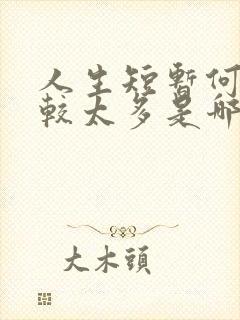 人生短暫何
較太多是哪
大木頭